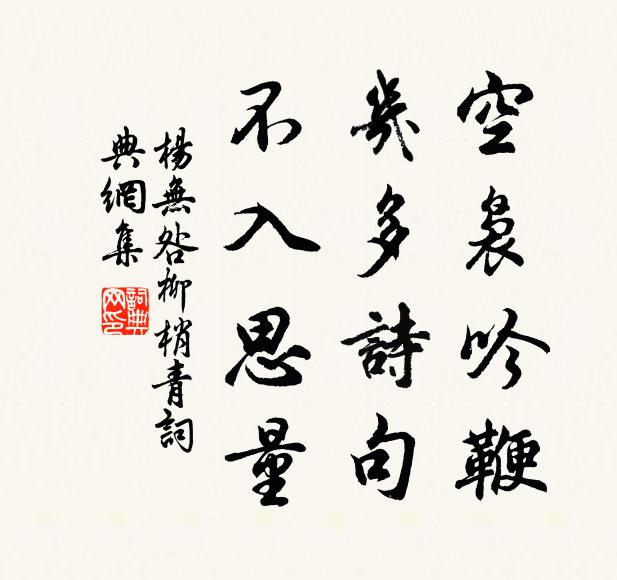 空裊吟鞭
幾多詩句
不入思量
楊無咎柳梢青詞
典網集
詞典
网印